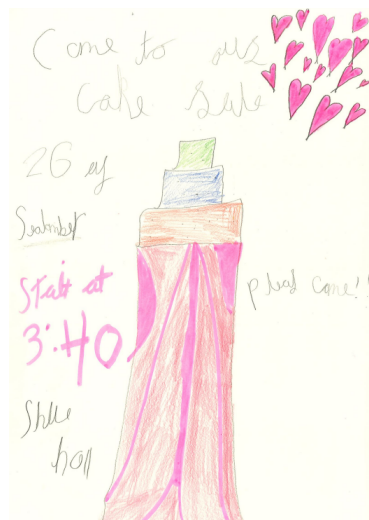 Come to ous
Cake Sale
26 of
Seatmber
Start at
3:40
plead come!!
Shlle
hall